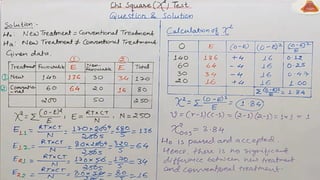 Chi Square (χ²) Test
Question & Solution
Solution -
H₀ New Treatment = Conventional Treatment
Hₐ New Treatment ≠ Conventional Treatment
Given data,
① ②
Treatment Favourable E Non Favourable E Total
① New 140 136 30 34 170
② Conventional 60 64 20 16 80
200 50 250
χ² = Σ (O-E)²/E ; E = RT×CT/N , N = 250
E₁₁ = RT×CT/N = 170×200/250 = 136
E₁₂ = RT×CT/N
E₂₁ = RT×CT/N
E₂₂ = RT×CT/N = 80×50/250 = 16
Calculation of χ²
O E (O-E) (O-E)² (O-E)²/E
140 136 +4 16 0.12
60 64 -4 16 0.25
30 34 -4 16 0.47
20 16 +4 16 1.00
Σ (O-E)²/E = 1.84
χ² = Σ (O-E)²/E = 1.84
V = (r-1)(c-1) = (2-1)(2-1) = 1×1 = 1
χ²₀.₀₅ = 3.84
H₀ is passed and accepted
Hence there is no significant
difference between new treatment
and conventional treatment.